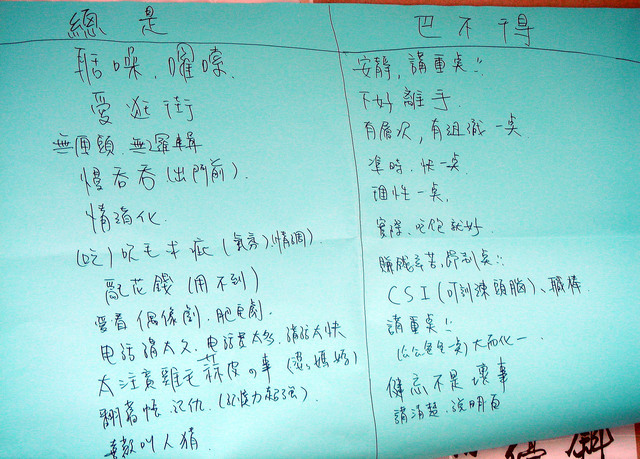 總是
聒噪、囉嗦
愛逛街
無厘頭 無邏輯
慢吞吞(出門前).
情緒化
(吃)吹毛求疵(氣氛)(情調)
亂花錢(用不到)
愛看偶像劇.肥皂劇.
电話講太久.电話費太多.講話太快
太注意雞毛蒜皮の事(婆婆媽媽)
翻舊帳 記仇.(記憶力超強)
喜歡叫人猜
巴不得
安靜,講重点!!
不好離手.
有層次,有組織一点
準時.快一点
理性一点.
實際.吃飽就好.
賺錢辛苦,節制点!!
CSI(可訓練頭腦)、職棒
講重点!!
大而化一
健忘不是壞事
講清楚.說明白